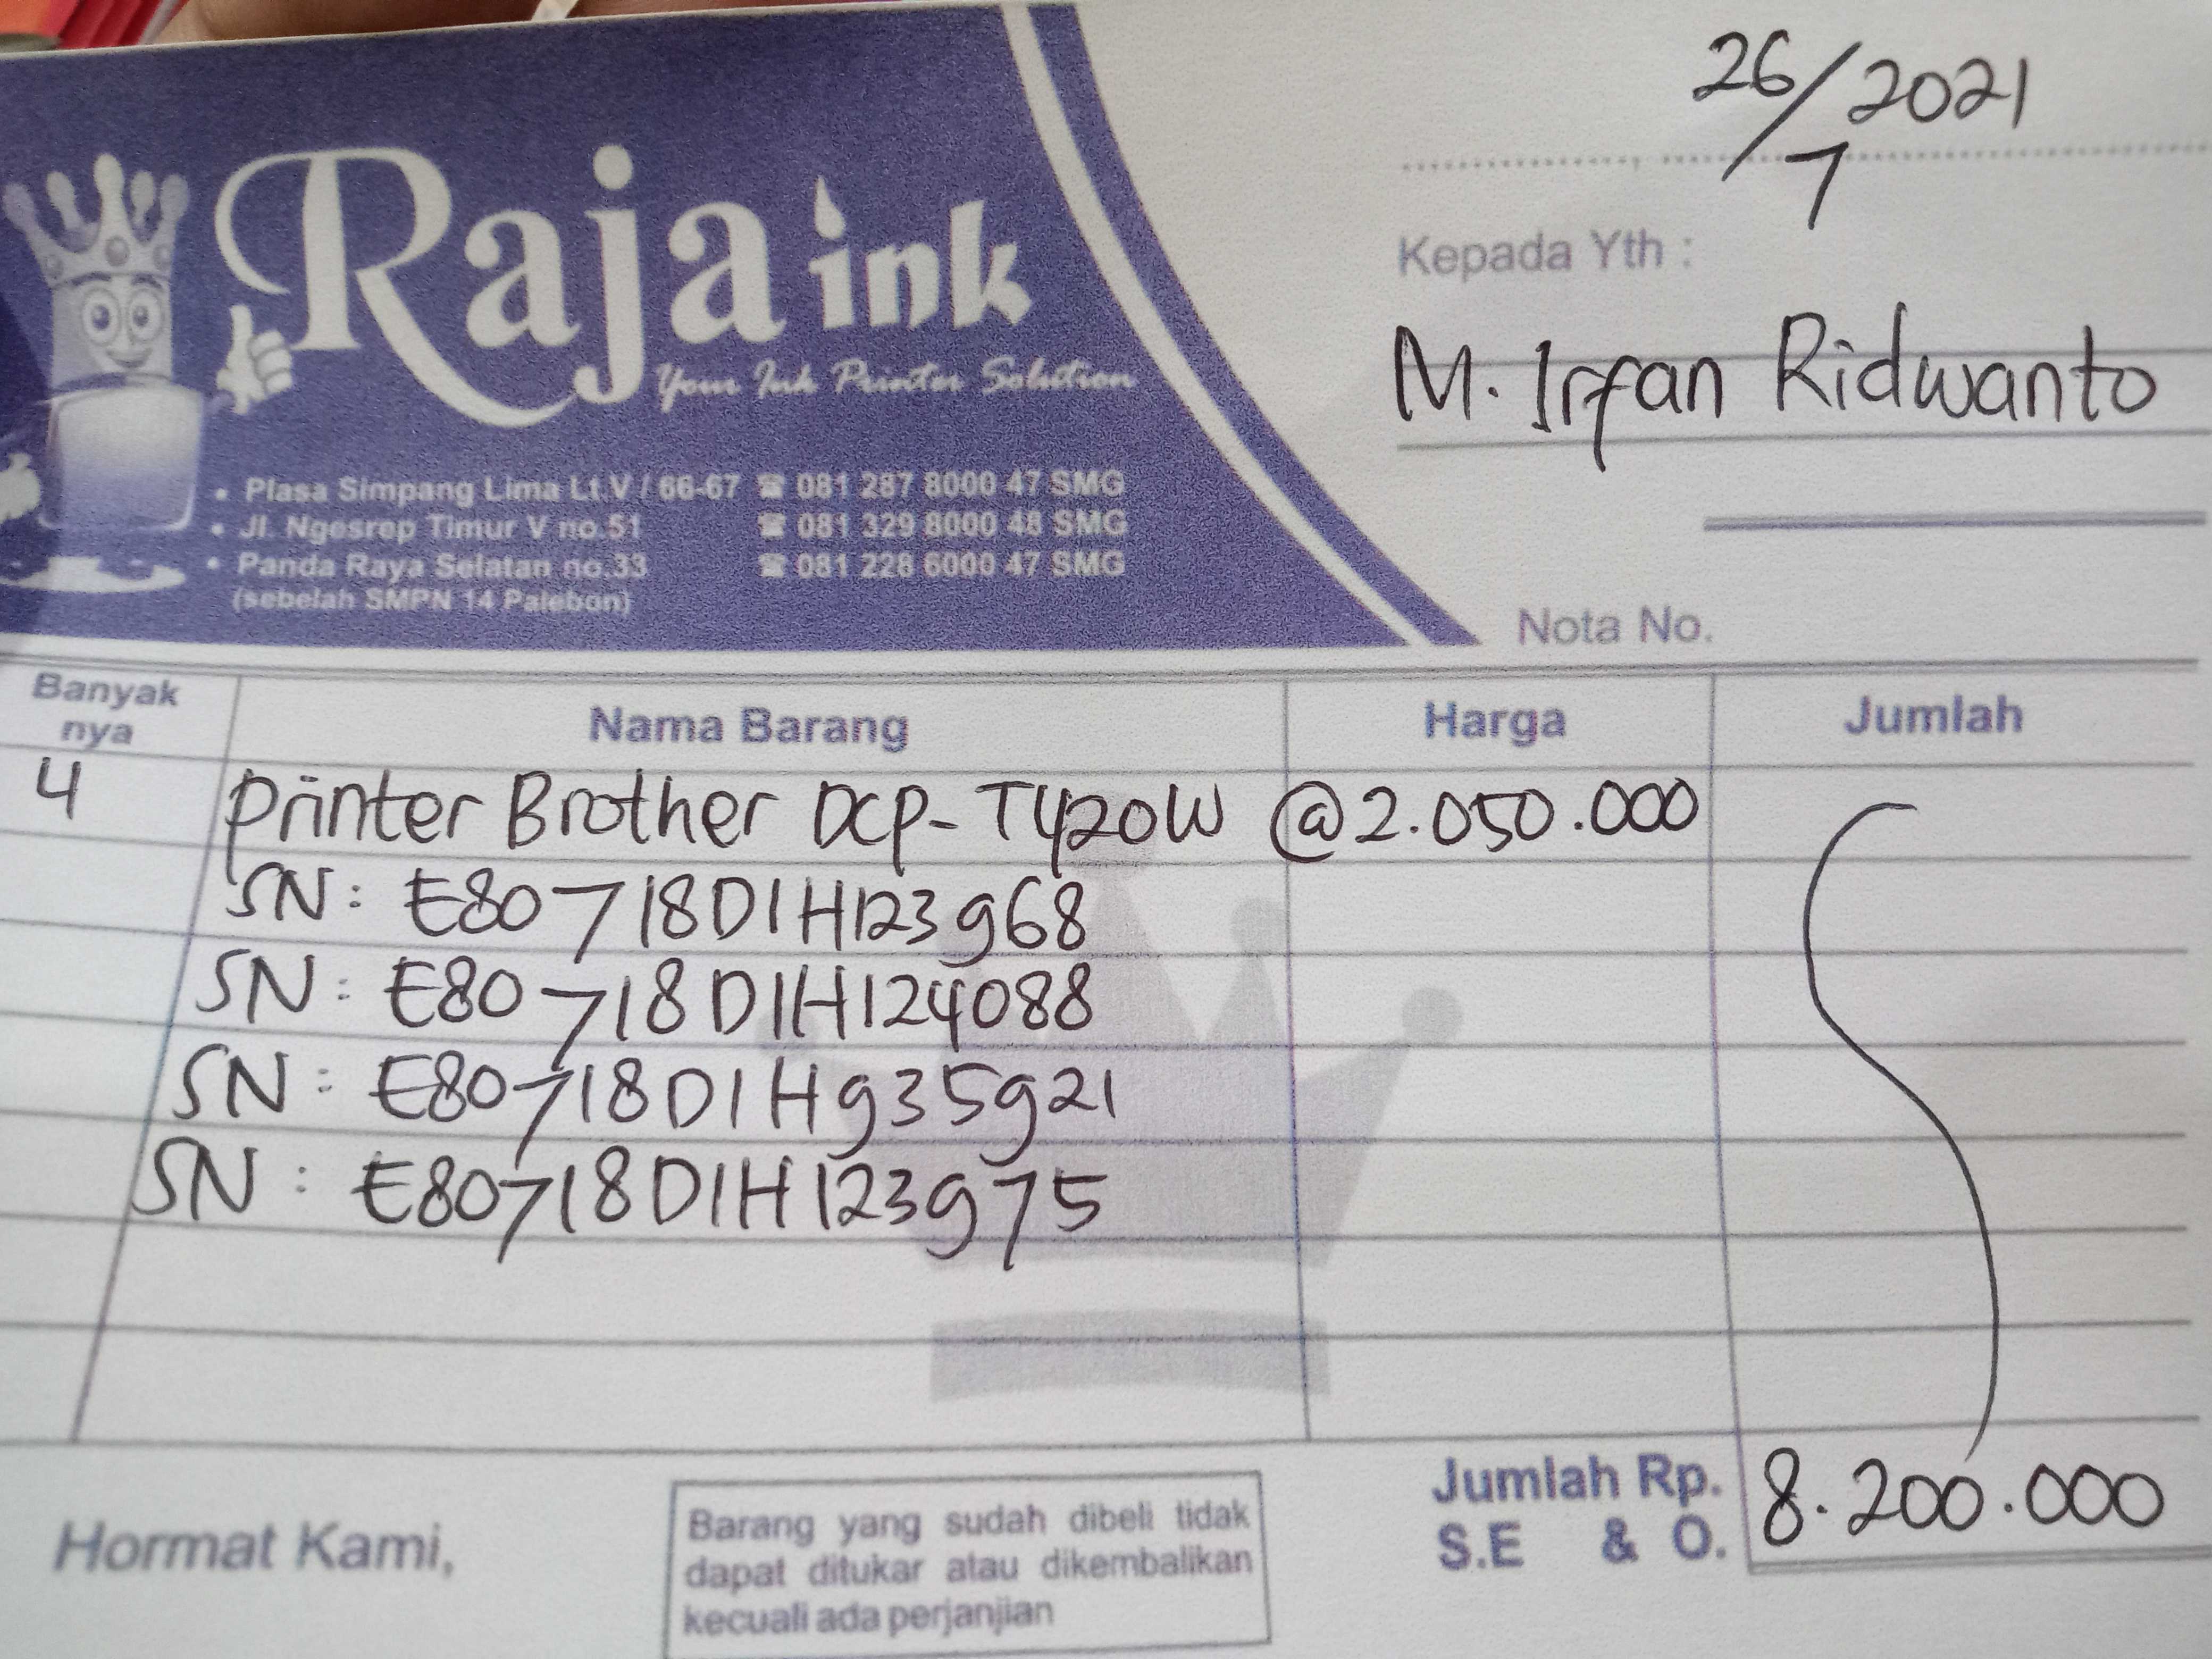 Raja ink
Your Ink Printer Solution
• Plasa Simpang Lima Lt.V / 66-67 ☎ 081 287 8000 47 SMG
• Jl. Ngesrep Timur V no.51 ☎ 081 329 8000 48 SMG
• Panda Raya Selatan no.33 ☎ 081 228 6000 47 SMG
(sebelah SMPN 14 Palebon)
26/7 2021
Kepada Yth :
M. Irfan Ridwanto
Nota No.
Banyak nya Nama Barang Harga Jumlah
4 Printer Brother DCP-T420W @2.050.000
SN: E80718D1H123968
SN: E80718D1H124088
SN: E80718D1H935921
SN: E80718D1H123975
Jumlah Rp. 8.200.000
S.E & O.
Hormat Kami,
Barang yang sudah dibeli tidak
dapat ditukar atau dikembalikan
kecuali ada perjanjian